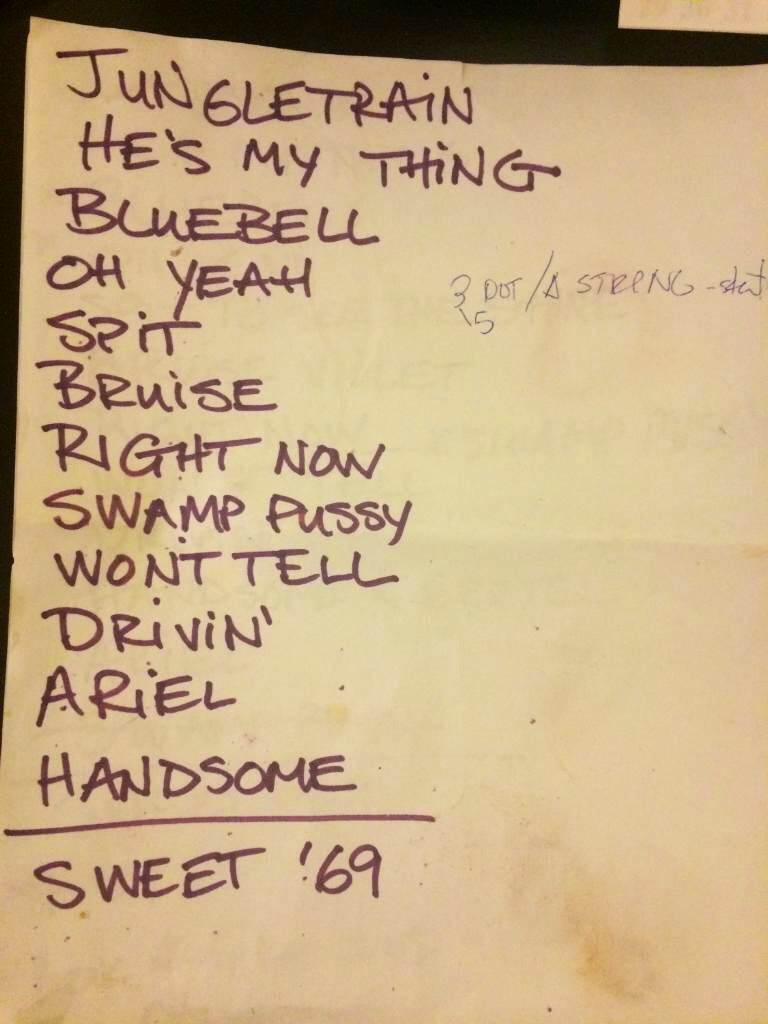 JUNGLETRAIN
HE'S MY THING
BLUEBELL
OH YEAH
3 DOT / A STRING - start
5
SPIT
BRUISE
RIGHT NOW
SWAMP PUSSY
WON'T TELL
DRIVIN'
ARIEL
HANDSOME
SWEET '69